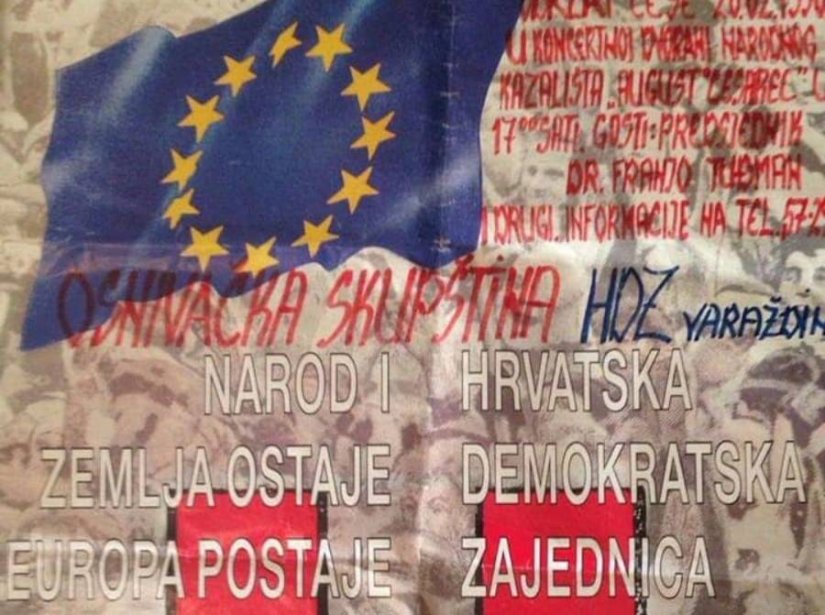 20.02.
U KONCERTNOJ DVORANI NARODNOG
KAZALIŠTA „AUGUST CESAREC" U
17⁰⁰ SATI. GOSTI: PREDSJEDNIK
DR. FRANJO TUĐMAN
I DRUGI. INFORMACIJE NA TEL. 57-2
OSNIVAČKA SKUPŠTINA HDZ VARAŽDIN
NAROD I HRVATSKA
ZEMLJA OSTAJE DEMOKRATSKA
EUROPA POSTAJE ZAJEDNICA